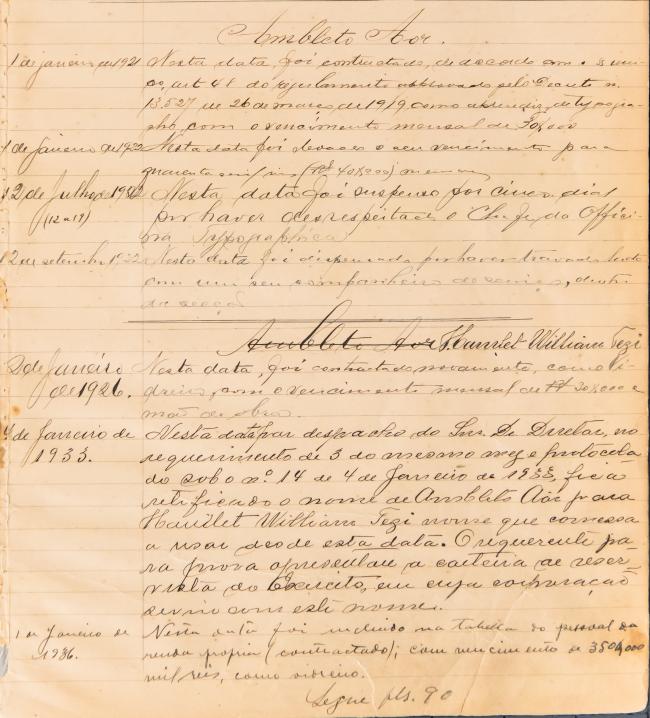 Ambleto Aor.
1 de janeiro de 1921 Nesta data, foi contractado, de accôrdo com o
art 48 do regulamento approvado pelo Decreto n.
13.527 de 26 de março de 1919, como aprendiz de typogra-
pho, com o vencimento mensal de 30$000
1 de Janeiro de 1922 Nesta data foi elevado o seu vencimento para
quarenta mil reis (Rs 40$000) mensaes
12 de Julho de 1922 Nesta data foi suspenso por cinco dias
(12 a 17) por haver desrespeitado o Chefe da Offici-
na Typographica
12 de setembro 1922 Nesta data foi dispensado por haver travado luta
com um seu companheiro de serviço, dentro
da secção
Ambleto Aor Hamlet William Tezi
2 de Janeiro Nesta data, foi contractado novamente, como vi-
de 1926. dreiro, com o vencimento mensal de Rs 30$000 e
mão de obra.
4 de Janeiro de Nesta data por despacho do Snr. Dr. Director, no
1933. requerimento de 3 do mesmo mez e protocola-
do sob o nº 14 de 4 de Janeiro de 1933, fica
retificado o nome de Ambleto Aor para
Hamlet William Tezi nome que comessa
a usar desde esta data. O requerente pa-
ra prova apresentou a carteira de reser-
vista do Exercito, em cuja corporação
serviu com este nome.
1 de Janeiro de Nesta data foi incluido na tabella do pessoal da
1936. renda propria (contractado); com vencimento de 350$000
mil réis, como vidreiro.
Segue fls. 90